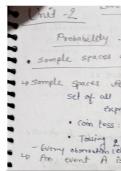 Unit - 2
Probability -
• Sample spaces
↳ Sample spaces
set of all
• Coin toss :
• Tossing 2
- Every observation
↳ An event A is